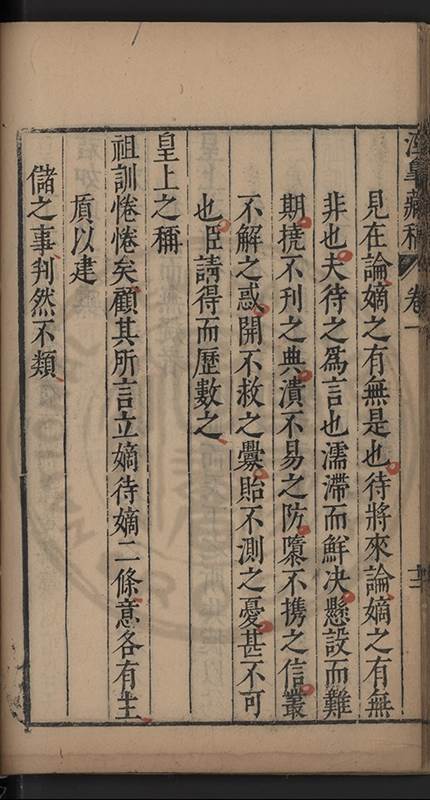 涇皋藏稿 卷一 十二
見在論嫡之有無是也待將來論嫡之有無
非也夫待之爲言也濡滯而鮮决懸設而難
期撓不刊之典潰不易之防隳不攜之信叢
不解之惑開不救之釁貽不測之憂甚不可
也臣請得而歷數之
皇上之稱
祖訓惓惓矣顧其所言立嫡待嫡二條意各有主
質以建
儲之事判然不類